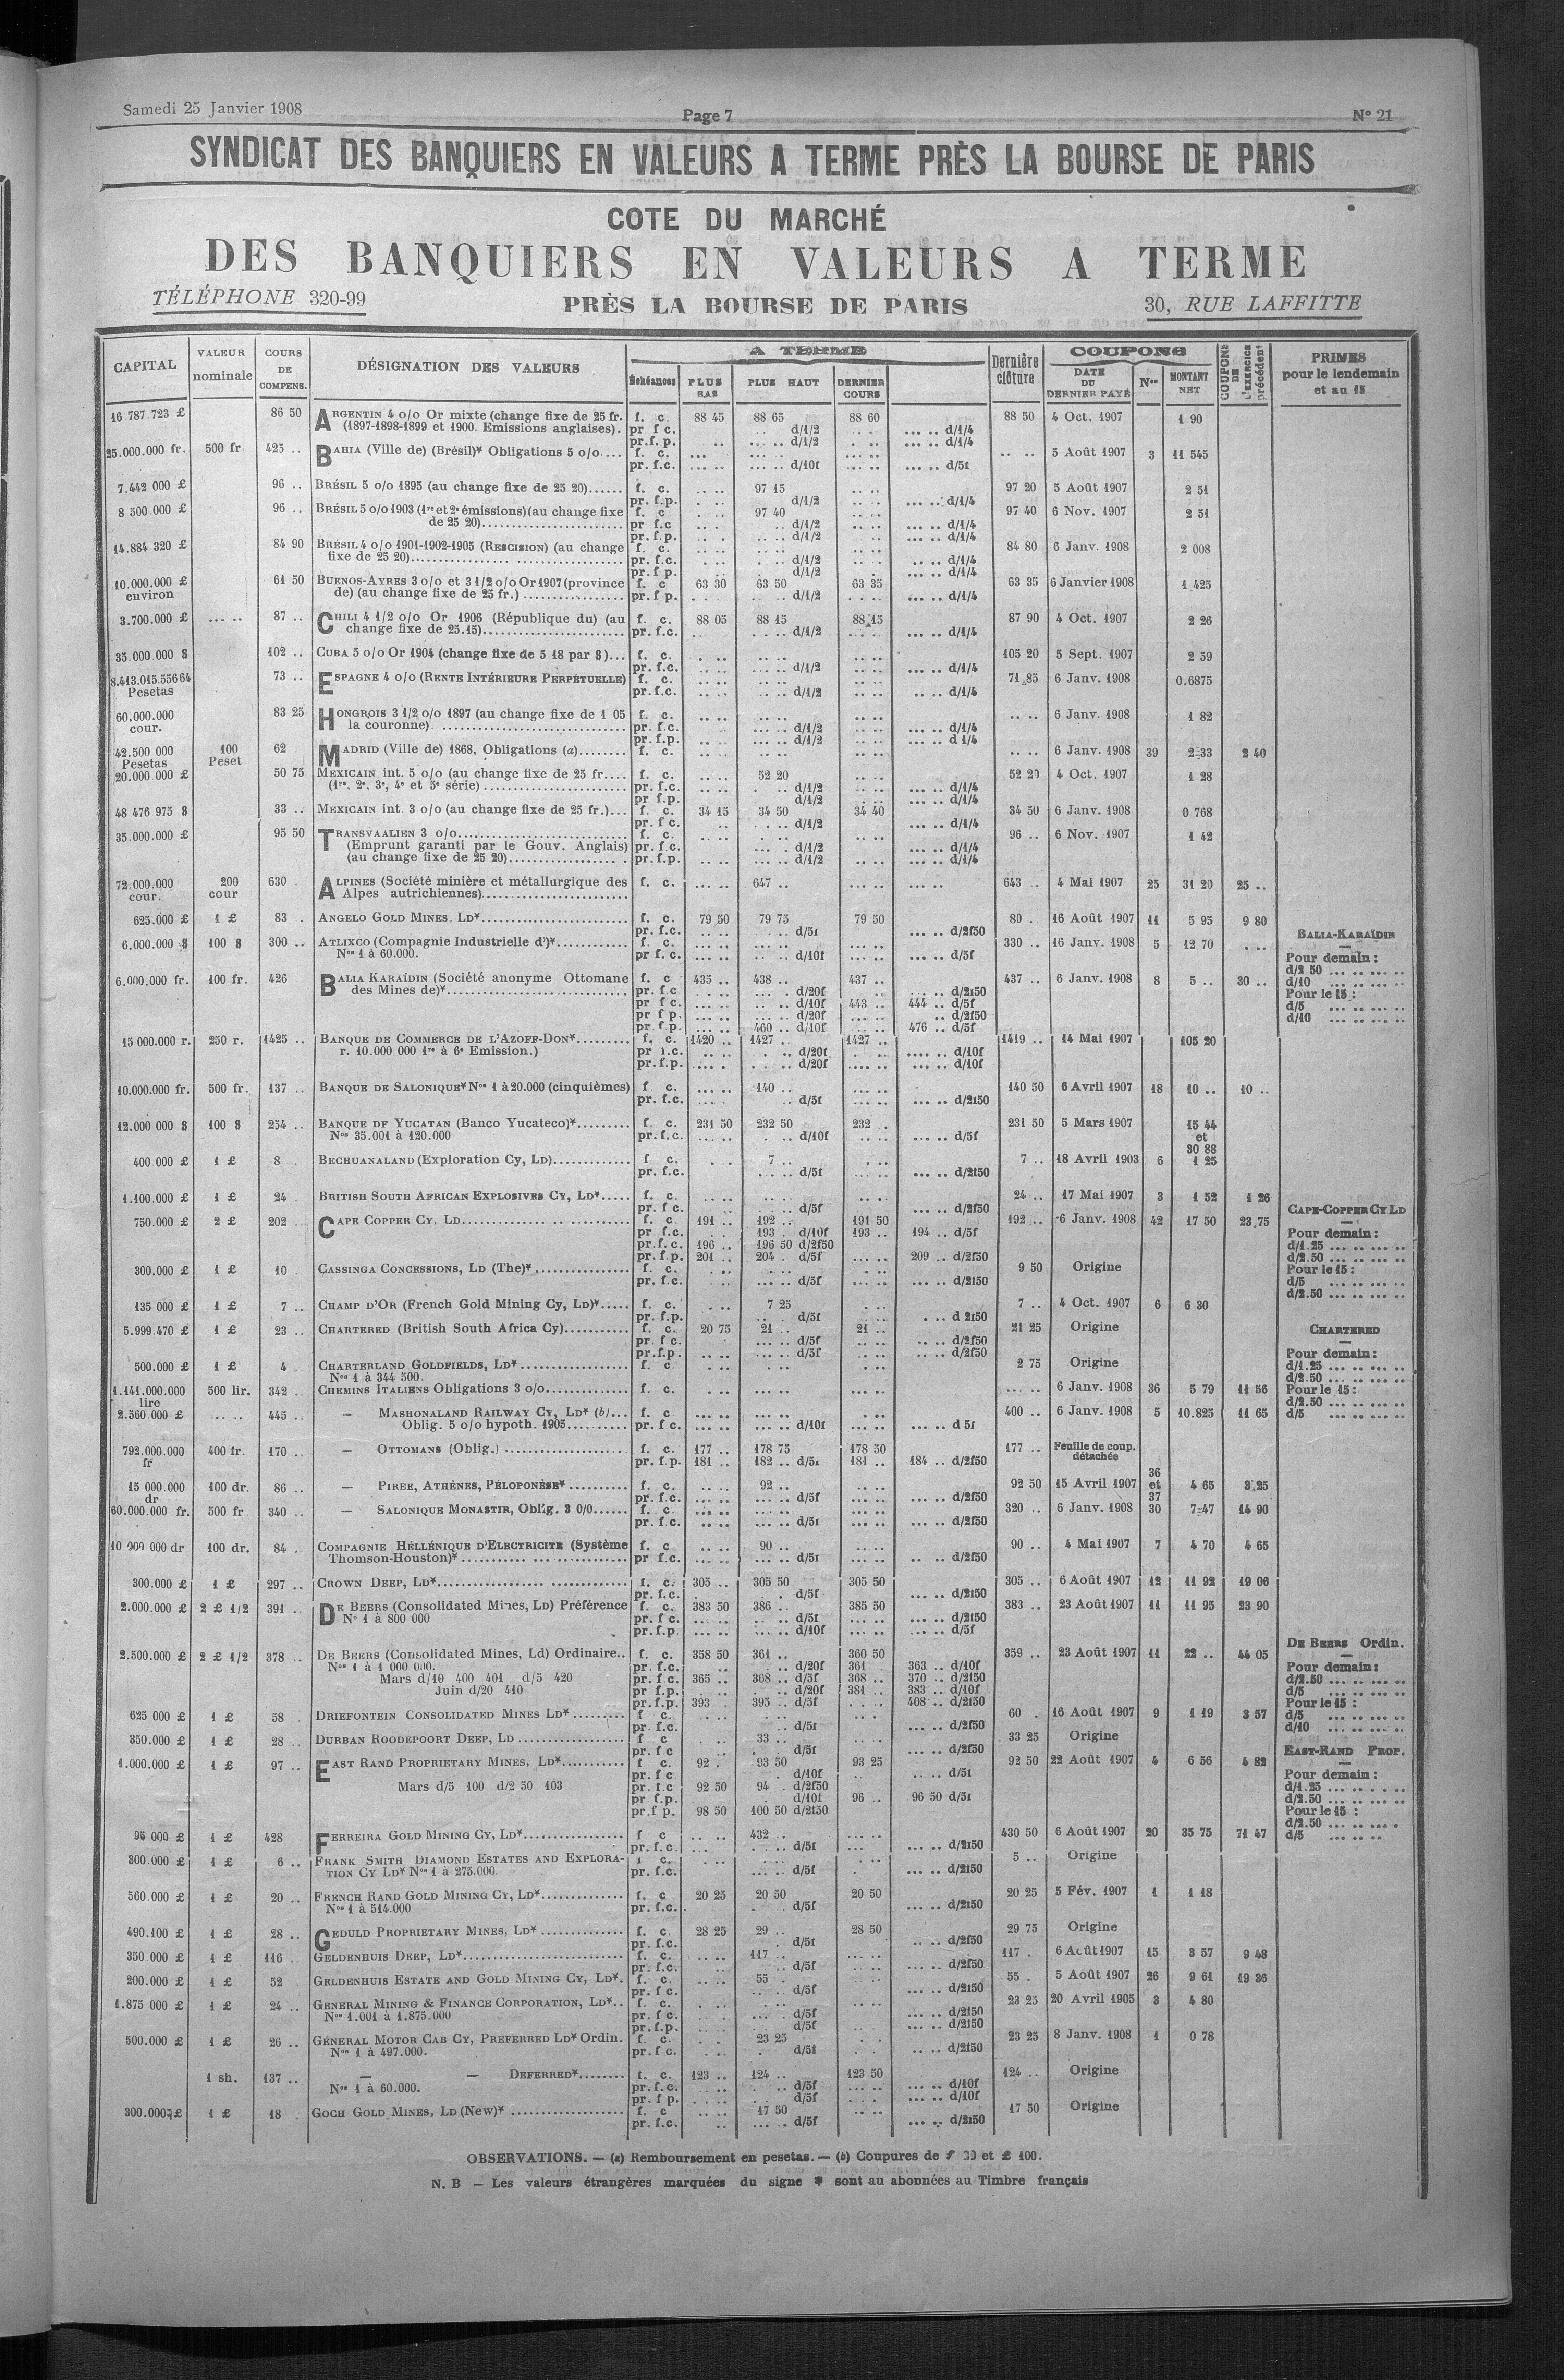 Samedi 25 Janvier 1908
Page 7
N° 21
SYNDICAT DES BANQUIERS EN VALEURS A TERME PRÈS LA BOURSE DE PARIS
COTE DU MARCHÉ
DES BANQUIERS EN VALEURS A TERME
TÉLÉPHONE 320-99 PRÈS LA BOURSE DE PARIS 30, RUE LAFFITTE
CAPITAL VALEUR nominale COURS DE COMPENS. DÉSIGNATION DES VALEURS A TERME Échéances PLUS BAS PLUS HAUT DERNIER COURS Dernière clôture COUPONS DATE DU DERNIER PAYÉ Nos MONTANT NET COUPONS DE L'EXERCICE précédent PRIMES pour le lendemain et au 15
16 787.723 £ 86 50 ARGENTIN 4 o/o Or mixte (change fixe de 25 fr. f. c. 88 45 88 65 88 60 88 50 4 Oct. 1907 1 90
(1897-1898-1899 et 1900. Emissions anglaises). pr f c. d/1/2 d/1/4
pr.f. p. d/1/2 d/1/4
25.000.000 fr. 500 fr 425 .. BAHIA (Ville de) (Brésil)* Obligations 5 o/o.... f. c. 5 Août 1907 3 11 545
pr. f.c. d/10f d/5f
7.442 000 £ 96 .. BRÉSIL 5 o/o 1895 (au change fixe de 25 20)...... f. c. 97 15 97 20 5 Août 1907 2 51
pr. f.p. d/1/2 d/1/4
8 500.000 £ 96 .. BRÉSIL 5 o/o 1903 (1re et 2e émissions) (au change fixe f. c 97 40 97 40 6 Nov. 1907 2 51
de 25 20)........ pr f.c d/1/2 d/1/4
pr. f.p. d/1/2 d/1/4
14.884 320 £ 84 90 BRÉSIL 4 o/o 1901-1902-1905 (RESCISION) (au change f. c. 84 80 6 Janv. 1908 2 008
fixe de 25 20)........ pr. f.c. d/1/2 d/1/4
pr. f p. d/1/2 d/1/4
10.000.000 £ environ 61 50 BUENOS-AYRES 3 o/o et 3 1/2 o/o Or 1907 (province f. c 63 30 63 50 63 35 63 35 6 Janvier 1908 1 425
de) (au change fixe de 25 fr.) ........ pr. f p. d/1/2 d/1/4
3.700.000 £ 87 .. CHILI 4 1/2 o/o Or 1906 (République du) (au f. c. 88 05 88 15 88 15 87 90 4 Oct. 1907 2 26
change fixe de 25.15)........ pr. f.c. d/1/2 d/1/4
35.000 000 $ 102 .. CUBA 5 o/o Or 1904 (change fixe de 5 18 par $)... f. c. 105 20 5 Sept. 1907 2 59
pr. f.c. d/1/2 d/1/4
8.413.015.556 64 Pesetas 73 .. ESPAGNE 4 o/o (RENTE INTÉRIEURE PERPÉTUELLE) f. c. 71 85 6 Janv. 1908 0.6875
pr. f.c. d/1/2 d/1/4
60.000.000 cour. 83 25 HONGROIS 3 1/2 o/o 1897 (au change fixe de 1 05 f. c. 6 Janv. 1908 1 82
la couronne). ........ pr. f.c. d/1/2 d/1/4
pr. f.p. d/1/2 d 1/4
42.500 000 Pesetas 100 Peset 62 MADRID (Ville de) 1868, Obligations (a)........ f. c. 6 Janv. 1908 39 2 33 2 40
20.000.000 £ 50 75 MEXICAIN int. 5 o/o (au change fixe de 25 fr.... f. c. 52 20 52 20 4 Oct. 1907 1 28
(1re, 2e, 3e, 4e et 5e série) ........ pr. f.c. d/1/2 d/1/4
pr f.p. d/1/2 d/1/4
48 476 975 $ 33 .. MEXICAIN int. 3 o/o (au change fixe de 25 fr.)... f. c. 34 15 34 50 34 40 34 50 6 Janv. 1908 0 768
pr. f c. d/1/2 d/1/4
35.000.000 £ 95 50 TRANSVAALIEN 3 o/o........ f. c. 96 .. 6 Nov. 1907 1 42
(Emprunt garanti par le Gouv. Anglais) pr. f.c. d/1/2 d/1/4
(au change fixe de 25 20)........ pr. f.p. d/1/2 d/1/4
72.000.000 cour. 200 cour 630 . ALPINES (Société minière et métallurgique des f. c. 647 .. 643 .. 4 Mai 1907 25 31 20 25 ..
Alpes autrichiennes)........
625.000 £ 1 £ 83 . ANGELO GOLD MINES, LD*........ f. c. 79 50 79 75 79 50 80 . 16 Août 1907 11 5 95 9 80
pr. f.c. d/5f d/2f50
6.000.000 $ 100 $ 300 .. ATLIXCO (Compagnie Industrielle d')*........ f. c. 330 .. 16 Janv. 1908 5 12 70
Nos 1 à 60.000. pr f.c. d/10f d/5f
6.000.000 fr. 100 fr. 426 BALIA KARAÏDIN (Société anonyme Ottomane f. c 435 .. 438 .. 437 .. 437 .. 6 Janv. 1908 8 5 .. 30 ..
des Mines de)*........ pr. f.c d/20f d/2f50
pr f c. d/10f 443 .. 444 .. d/5f
pr f p. d/20f d/2f50
pr. f p. 460 .. d/10f 476 .. d/5f
BALIA-KARAÏDIN
Pour demain :
d/2 50
d/10
Pour le 15 :
d/5
d/10
15 000.000 r. 250 r. 1425 .. BANQUE DE COMMERCE DE L'AZOFF-DON*........ f. c. 1420 .. 1427 .. 1427 .. 1419 .. 14 Mai 1907 105 20
r. 10.000 000 1re à 6e Emission.) pr f.c. d/20f d/10f
pr. f.p. d/20f d/10f
10.000.000 fr. 500 fr. 137 .. BANQUE DE SALONIQUE* Nos 1 à 20.000 (cinquièmes) f c. 140 .. 140 50 6 Avril 1907 18 10 .. 10 ..
pr. f.c. d/5f d/2f50
12.000 000 $ 100 $ 254 .. BANQUE DE YUCATAN (Banco Yucateco)*........ f. c. 231 50 232 50 232 .. 231 50 5 Mars 1907 15 44 et 30 88
Nos 35.001 à 120.000 pr. f.c. d/10f d/5f
400 000 £ 1 £ 8 . BECHUANALAND (Exploration Cy, LD)........ f c. 7 .. 7 .. 18 Avril 1903 6 1 25
pr. f.c. d/5f d/2f50
1.100.000 £ 1 £ 24 . BRITISH SOUTH AFRICAN EXPLOSIVES CY, LD*..... f. c. 24 .. 17 Mai 1907 3 1 52 1 26
pr. f c. d/5f d/2f50
750.000 £ 2 £ 202 CAPE COPPER CY. LD........ f. c. 191 .. 192 .. 191 50 192 .. 6 Janv. 1908 42 17 50 23.75
pr f.c. 193 . d/10f 193 .. 194 .. d/5f
pr. f. c. 196 .. 196 50 d/2f50
pr. f.p. 201 .. 204 . d/5f 209 .. d/2f50
CAPE-COPPER CY LD
Pour demain :
d/1.25
d/2.50
Pour le 15 :
d/5
d/2.50
300.000 £ 1 £ 10 . CASSINGA CONCESSIONS, LD (The)*........ f. c. 9 50 Origine
pr. f.c. d/5f d/2f50
135 000 £ 1 £ 7 .. CHAMP D'OR (French Gold Mining Cy, LD)*..... f. c. 7 25 7 .. 4 Oct. 1907 6 6 30
pr. f.p. d/5f d 2f50
5.999.470 £ 1 £ 23 .. CHARTERED (British South Africa Cy)........ f. c. 20 75 21 .. 21 .. 21 25 Origine
pr. f c. d/5f d/2f50
pr. f.p. d/5f d/2f50
CHARTERED
Pour demain :
d/1.25
d/2.50
Pour le 15 :
d/2.50
d/5
500.000 £ 1 £ 4 CHARTERLAND GOLDFIELDS, LD*........ f. c. 2 75 Origine
Nos 1 à 344 500.
1.141.000.000 lire 500 lir. 342 . CHEMINS ITALIENS Obligations 3 o/o........ f. c. 6 Janv. 1908 36 5 79 11 56
2.560.000 £ 445 .. — MASHONALAND RAILWAY CY, LD* (b)... f. c 400 .. 6 Janv. 1908 5 10.825 11 65
Oblig. 5 o/o hypoth. 1905........ pr. f c. d/10f d 5f
792.000.000 fr 400 fr. 170 .. — OTTOMANS (Oblig.) ........ f. c. 177 .. 178 75 178 50 177 .. Feuille de coup. détachée
pr. f.p. 181 .. 182 .. d/5f 181 .. 184 .. d/2f50
15 000.000 dr 100 dr. 86 .. — PIREE, ATHÉNES, PÉLOPONÈSE*........ f. c. 92 .. 92 50 15 Avril 1907 36 et 37 4 65 3.25
pr. f.c. d/5f d/2f50
60.000.000 fr. 500 fr 340 .. — SALONIQUE MONASTIR, Oblig. 3 0/0...... f. c 320 .. 6 Janv. 1908 30 7 47 14 90
pr. f.c. d/5f d/2f50
10 000 000 dr 100 dr. 84 .. COMPAGNIE HÉLLÉNIQUE D'ELECTRICITE (Système f. c 90 .. 90 .. 4 Mai 1907 7 4 70 4 65
Thomson-Houston)*........ pr f.c. d/5f d/2f50
300.000 £ 1 £ 297 .. CROWN DEEP, LD*........ f. c. 305 .. 305 50 305 50 305 .. 6 Août 1907 12 11 92 19 06
pr. f.c. d/5f d/2f50
2.000.000 £ 2 £ 1/2 391 . DE BEERS (Consolidated Mines, LD) Préférence f. c. 383 50 386 .. 385 50 383 .. 23 Août 1907 11 11 95 23 90
N° 1 à 800 000 pr. f c. d/5f d/2f50
pr. f.p. d/10f d/5f
2.500.000 £ 2 £ 1/2 378 .. DE BEERS (Consolidated Mines, Ld) Ordinaire.. f. c. 358 50 361 .. 360 50 359 .. 23 Août 1907 11 22 .. 44 05
Nos 1 à 1 000 000. pr. f.c. d/20f 361 363 .. d/10f
Mars d/10 400 401 d/5 420 pr. f.c. 365 .. 368 .. d/5f 368 .. 370 .. d/2f50
Juin d/20 410 pr f.p. d/20f 381 .. 383 .. d/10f
pr. f.p. 393 . 395 .. d/5f 408 .. d/2f50
DE BEERS Ordin.
Pour demain :
d/2.50
d/5
Pour le 15 :
d/5
d/10
625 000 £ 1 £ 58 DRIEFONTEIN CONSOLIDATED MINES LD*........ f c. 60 . 16 Août 1907 9 1 19 3 57
pr. f.c. d/5f d/2f50
350.000 £ 1 £ 28 .. DURBAN ROODEPOORT DEEP, LD ........ f c 33 .. 33 25 Origine
pr. f c d/5f d/2f50
1.000.000 £ 1 £ 97 .. EAST RAND PROPRIETARY MINES, LD*........ f c. 92 . 93 50 93 25 92 50 22 Août 1907 4 6 56 4 82
pr. f c d/10f d/5f
Mars d/5 100 d/2 50 103 pr. f.c 92 50 94 . d/2f50
pr f.p. d/10f 96 .. 96 50 d/5f
pr. f p. 98 50 100 50 d/2f50
EAST-RAND PROP.
Pour demain :
d/1.25
d/2.50
Pour le 15 :
d/2.50
d/5
95 000 £ 1 £ 428 FERREIRA GOLD MINING CY, LD*........ f c 432 .. 430 50 6 Août 1907 20 35 75 71 47
pr. f.c. d/5f d/2f50
300.000 £ 1 £ 6 .. FRANK SMITH DIAMOND ESTATES AND EXPLORA- f c. 5 .. Origine
TION CY LD* Nos 1 à 275.000. pr. f.c. d/5f d/2f50
560.000 £ 1 £ 20 .. FRENCH RAND GOLD MINING CY, LD*........ f. c 20 25 20 50 20 50 20 25 5 Fév. 1907 1 1 18
Nos 1 à 514.000 pr. f.c. d/5f d/2f50
490.100 £ 1 £ 28 .. GEDULD PROPRIETARY MINES, LD*........ f. c. 28 25 29 .. 28 50 29 75 Origine
pr. f.c. d/5f d/2f50
350 000 £ 1 £ 116 GELDENHUIS DEEP, LD*........ f. c. 117 .. 117 . 6 Août 1907 15 3 57 9 48
pr. f.c. d/5f d/2f50
200.000 £ 1 £ 52 GELDENHUIS ESTATE AND GOLD MINING CY, LD*. f. c. 55 . 55 . 5 Août 1907 26 9 61 19 36
pr. f c. d/5f d/2f50
1.875 000 £ 1 £ 24 .. GENERAL MINING & FINANCE CORPORATION, LD*.. f. c. 23 25 20 Avril 1905 3 4 80
Nos 1.001 à 1.875.000 pr. f c. d/5f d/2f50
pr. f.p. d/5f d/2f50
500.000 £ 1 £ 26 .. GÉNERAL MOTOR CAB CY, PREFERRED LD* Ordin. f. c. 23 25 23 25 8 Janv. 1908 1 0 78
Nos 1 à 497.000. pr. f c. d/5f d/2f50
1 sh. 137 .. — — DEFERRED*........ f. c. 123 .. 124 .. 123 50 124 .. Origine
Nos 1 à 60.000. pr. f.c. d/5f d/10f
pr. f p. d/5f d/10f
300.000 £ 1 £ 18 GOCH GOLD MINES, LD (New)* ........ f. c 17 50 17 50 Origine
pr. f.c. d/5f d/2f50
OBSERVATIONS. — (a) Remboursement en pesetas. — (b) Coupures de et £ 100.
N. B — Les valeurs étrangères marquées du signe * sont au abonnées au Timbre français